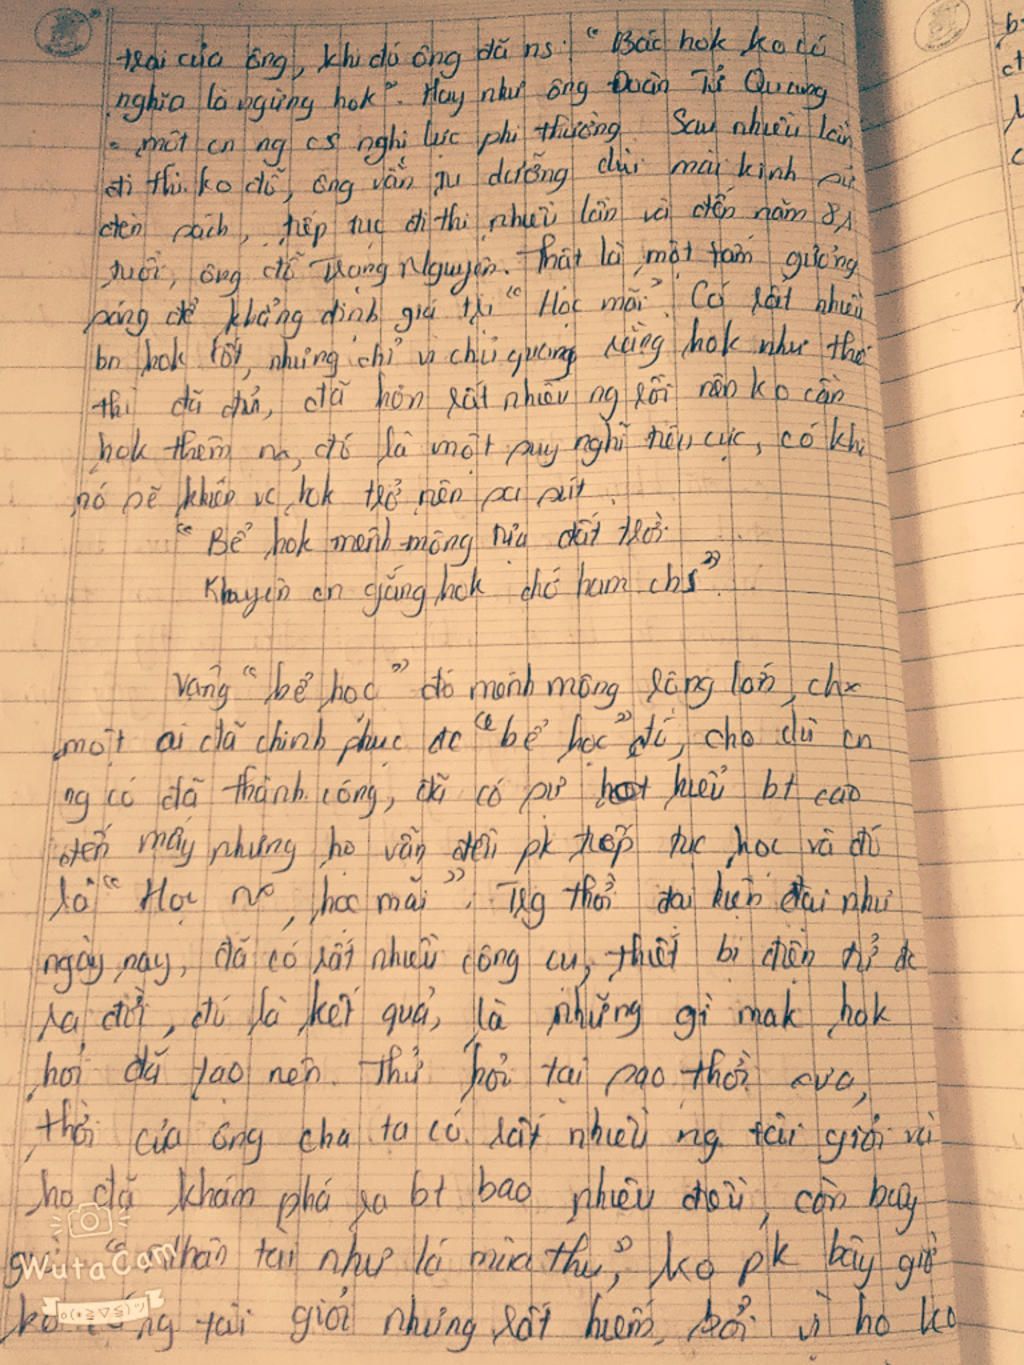 trai của ông, khi đó ông đã ns: "Bác hok ko có
nghĩa là ngừng hok". Hay như ông Đoàn Tử Quang
- một cn ng cs nghị lực phi thường. Sau nhiều lần
đi thi ko đỗ, ông vẫn tu dưỡng dùi mài kinh sử
đèn sách, tiếp tục đi thi nhiều lần và đến năm 81
tuổi, ông đỗ Trạng Nguyên. Thật là một tấm gương
sáng để khẳng định giá trị "Học mãi". Có rất nhiều
bn hok tốt, nhưng chỉ vì chủ quang rằng hok như thế
thì đã đủ, đã hơn rất nhiều ng rồi nên ko cần
hok thêm nx, đó là một suy nghĩ tiêu cực, có khi
nó sẽ khiến vc hok trở nên sa sút.
"Bể hok mênh mông tựa đất trời
Khuyên cn gắng hok chớ ham chs"
Vâng "bể học" đó mênh mông rộng lớn, chx
một ai đã chinh phục đc "bể học" đó, cho dù cn
ng có đã thành công, đã có sự hiểu bt cao
đến mấy nhưng họ vẫn đều pk tiếp tục học và đó
là "Học nx, học mãi". Trg thời đại hiện đại như
ngày nay, đã có rất nhiều công cụ, thiết bị điện tử đc
ra đời, đó là kết quả, là những gì mak hok
hỏi đã tạo nên. Thử hỏi tại sao thời xưa,
thời của ông cha ta có rất nhiều ng tài giỏi và
họ đã khám phá ra bt bao nhiêu điều, còn bây
giờ "nhân tài như lá mùa thu", ko pk bây giờ
ko có ng tài giỏi nhưng rất hiếm, bởi vì họ ko
WutaCam